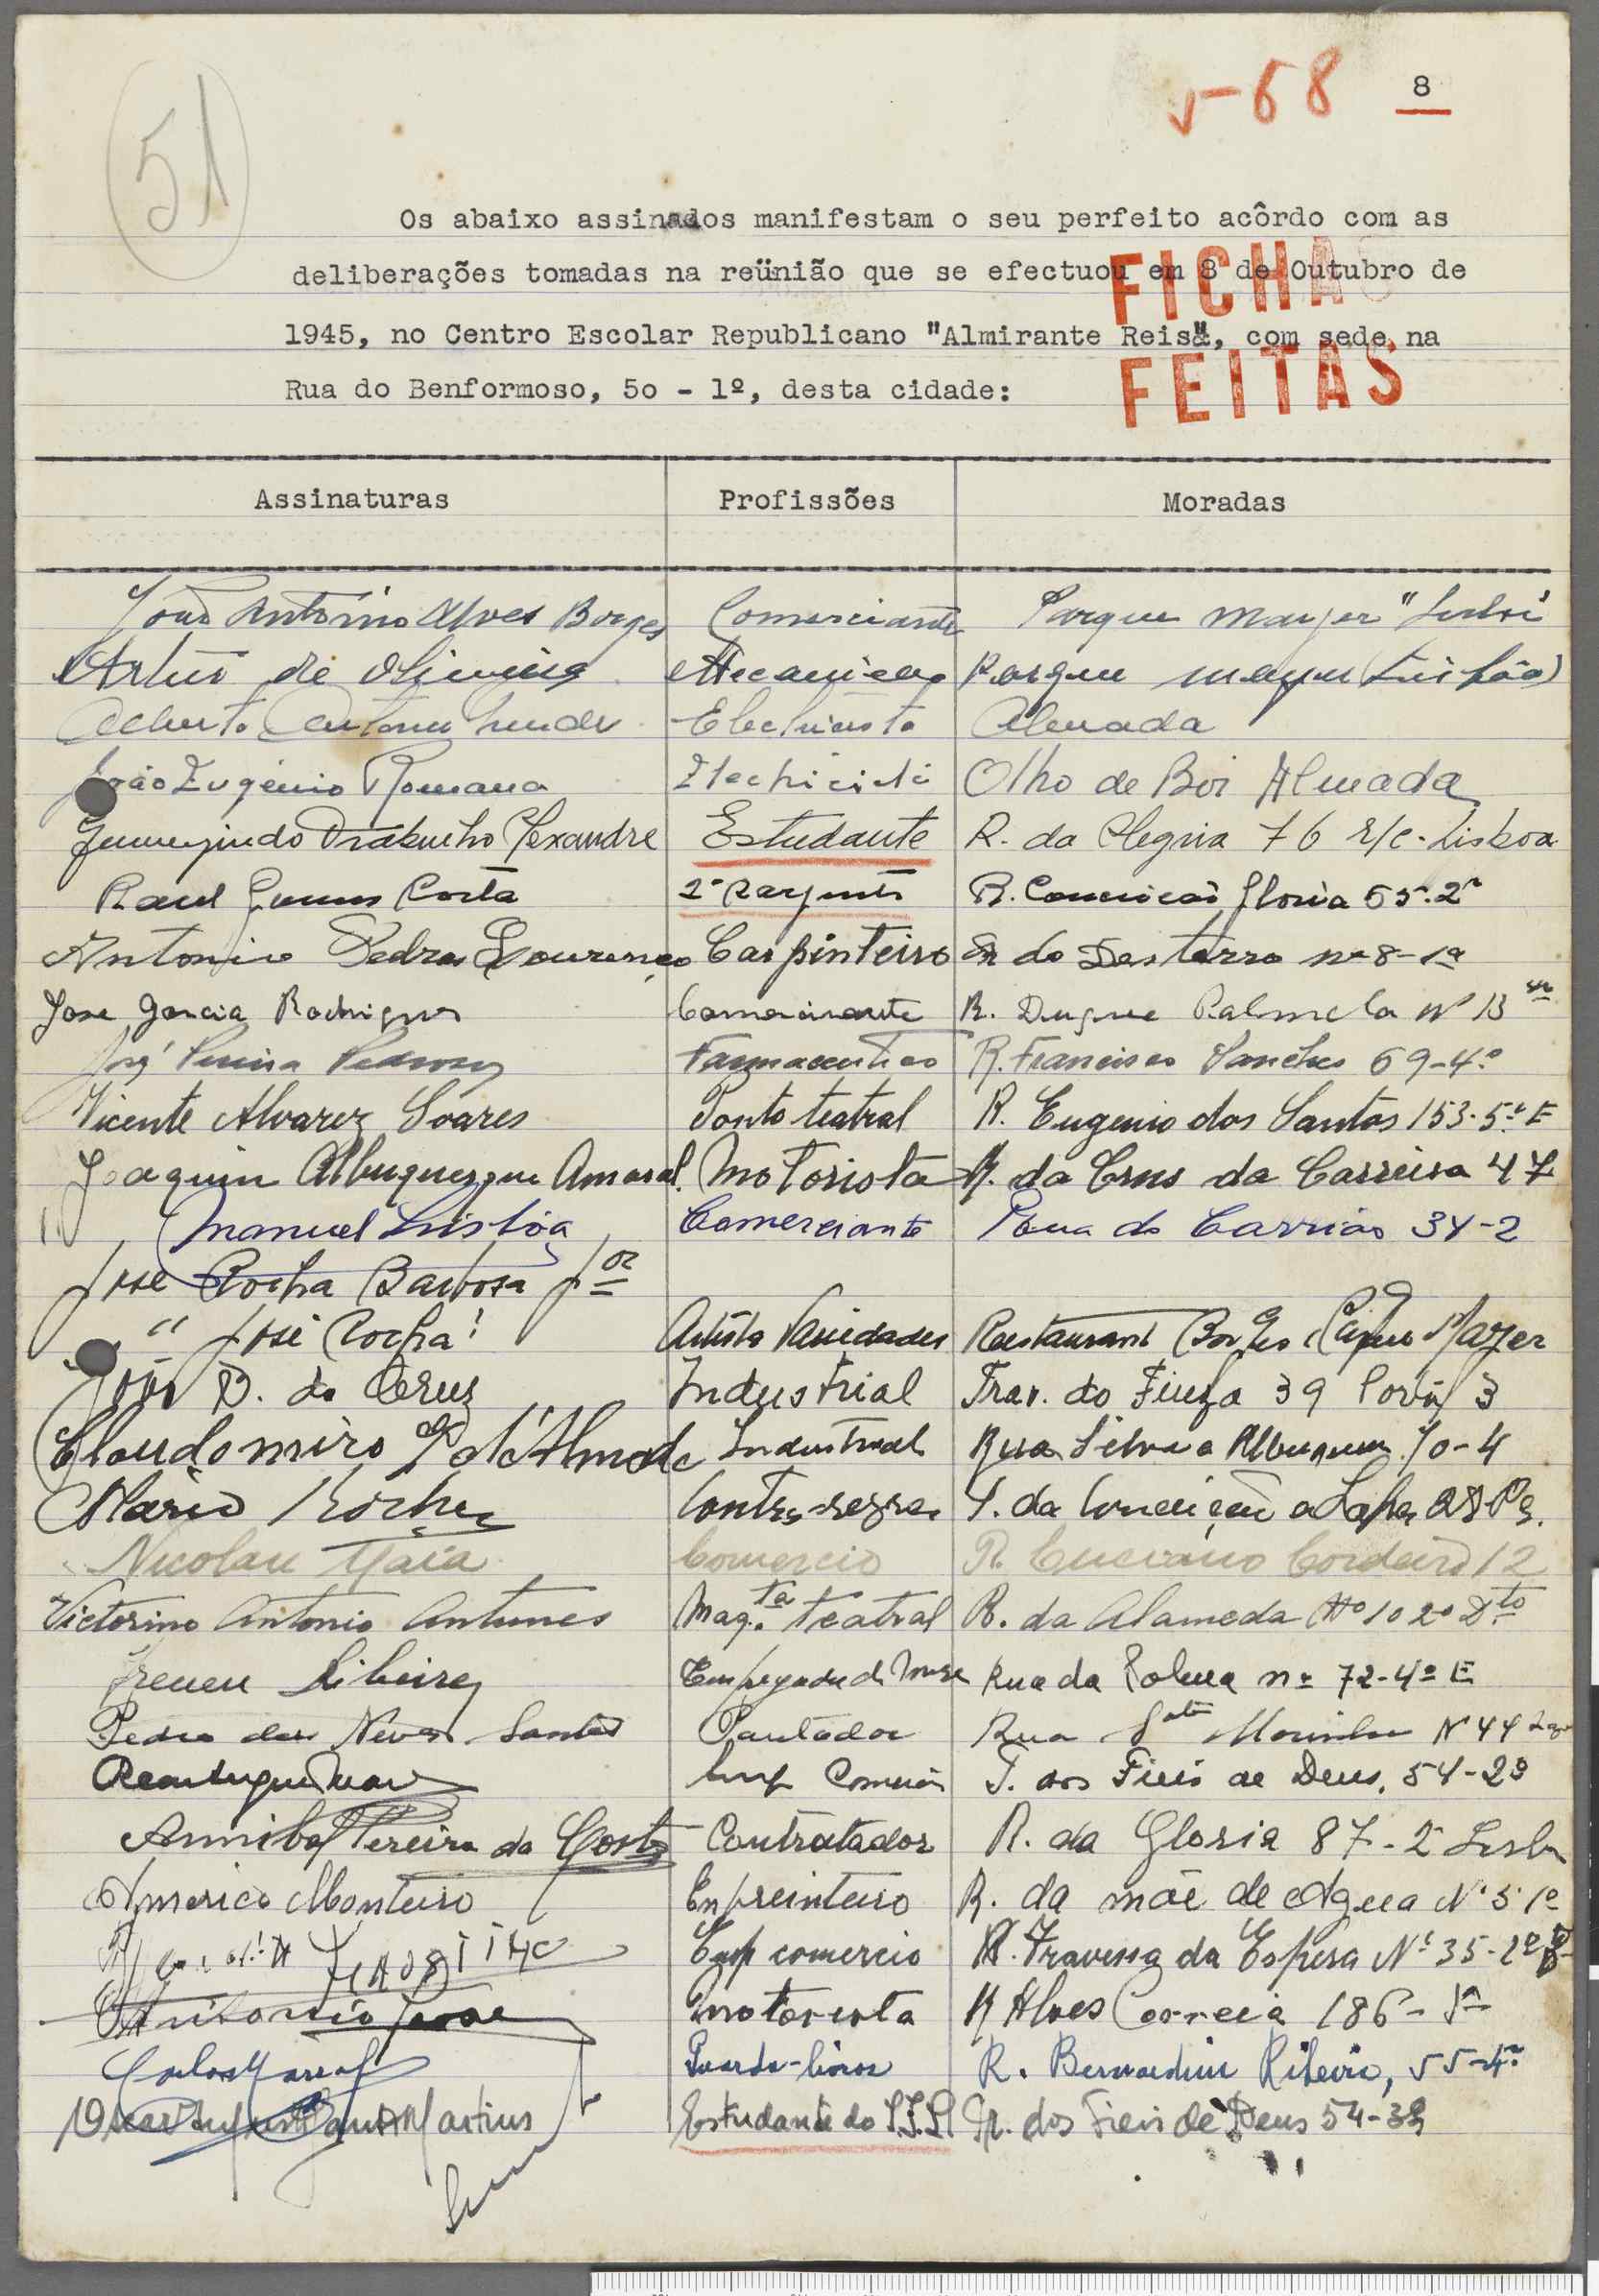 51
5-68
8
Os abaixo assinados manifestam o seu perfeito acôrdo com as
deliberações tomadas na reünião que se efectuou em 8 de Outubro de
1945, no Centro Escolar Republicano "Almirante Reis", com sede na
Rua do Benformoso, 50 - 1º, desta cidade:
FICHAS
FEITAS
Assinaturas Profissões Moradas
João António Alves Borges Comerciante Parque Mayer
Artur de Oliveira Mecanico Parque mayer (Lisbôa)
Alberto Antonio Electricista Almada
João Eugénio Romana Electricista Olho de Boi Almada
Gumezindo Trabucho Alexandre Estudante R. da Alegria 76 r/c. Lisboa
Raul Gomes Costa 2º Sargento R. Conceicão Gloria 65-2º
Antonio Pedro Lourenço Carpinteiro do Desterro nº 8-1º
Jose Garcia Rodrigues Comerciante R. Duque Palmela Nº 13
José Pereira Pedroso Farmaceutico R. Francisco Sanches 69-4º
Vicente Alvarez Soares Ponto teatral R. Eugenio dos Santos 153-5º E
Joaquim Albuquerque Amaral. Motorista R. da Crus da Carreira 47
Manuel Lisbôa Comerciante Rua do Carrião 34-2
José Rocha Barbosa Jor
" José Rocha! Artista Variedades Restaurant Borges Parque Mayer
João D. da Cruz Industrial Trav. do Fiuza 39 Porta 3
Claudomiro G. d'Almeda Industrial Rua Silva e Albuquerque 70-4
Mario Rocha Contra-regra T. da Conceição a Lapa 28 P
Nicolau Maia Comercio R. Luciano Cordeiro 12
Victorino Antonio Antunes Maq.ta teatral R. da Alameda Nº 10 2º Dto
Ireneu Ribeiro Empregado de Rua da Palma nº 72-4º E
Pedro das Neves Santos Pautador Rua Marinha Nº 44
Emp Comercio T. dos Fieis de Deus, 54-2º
Annibal Pereira da Costa Contratador R. da Gloria 87-2º Lisboa
Americo Monteiro Enpreinteiro R. da mãe de Agua Nº 5 1º
Emp comercio R. Travessa da Espera Nº 35-2º
Antonio motorista R Alves Correia 186-1º
Carlos Guarda-livros R. Bernardim Ribeiro, 55-4º
Martins Estudante do dos Fieis de Deus 54-3º